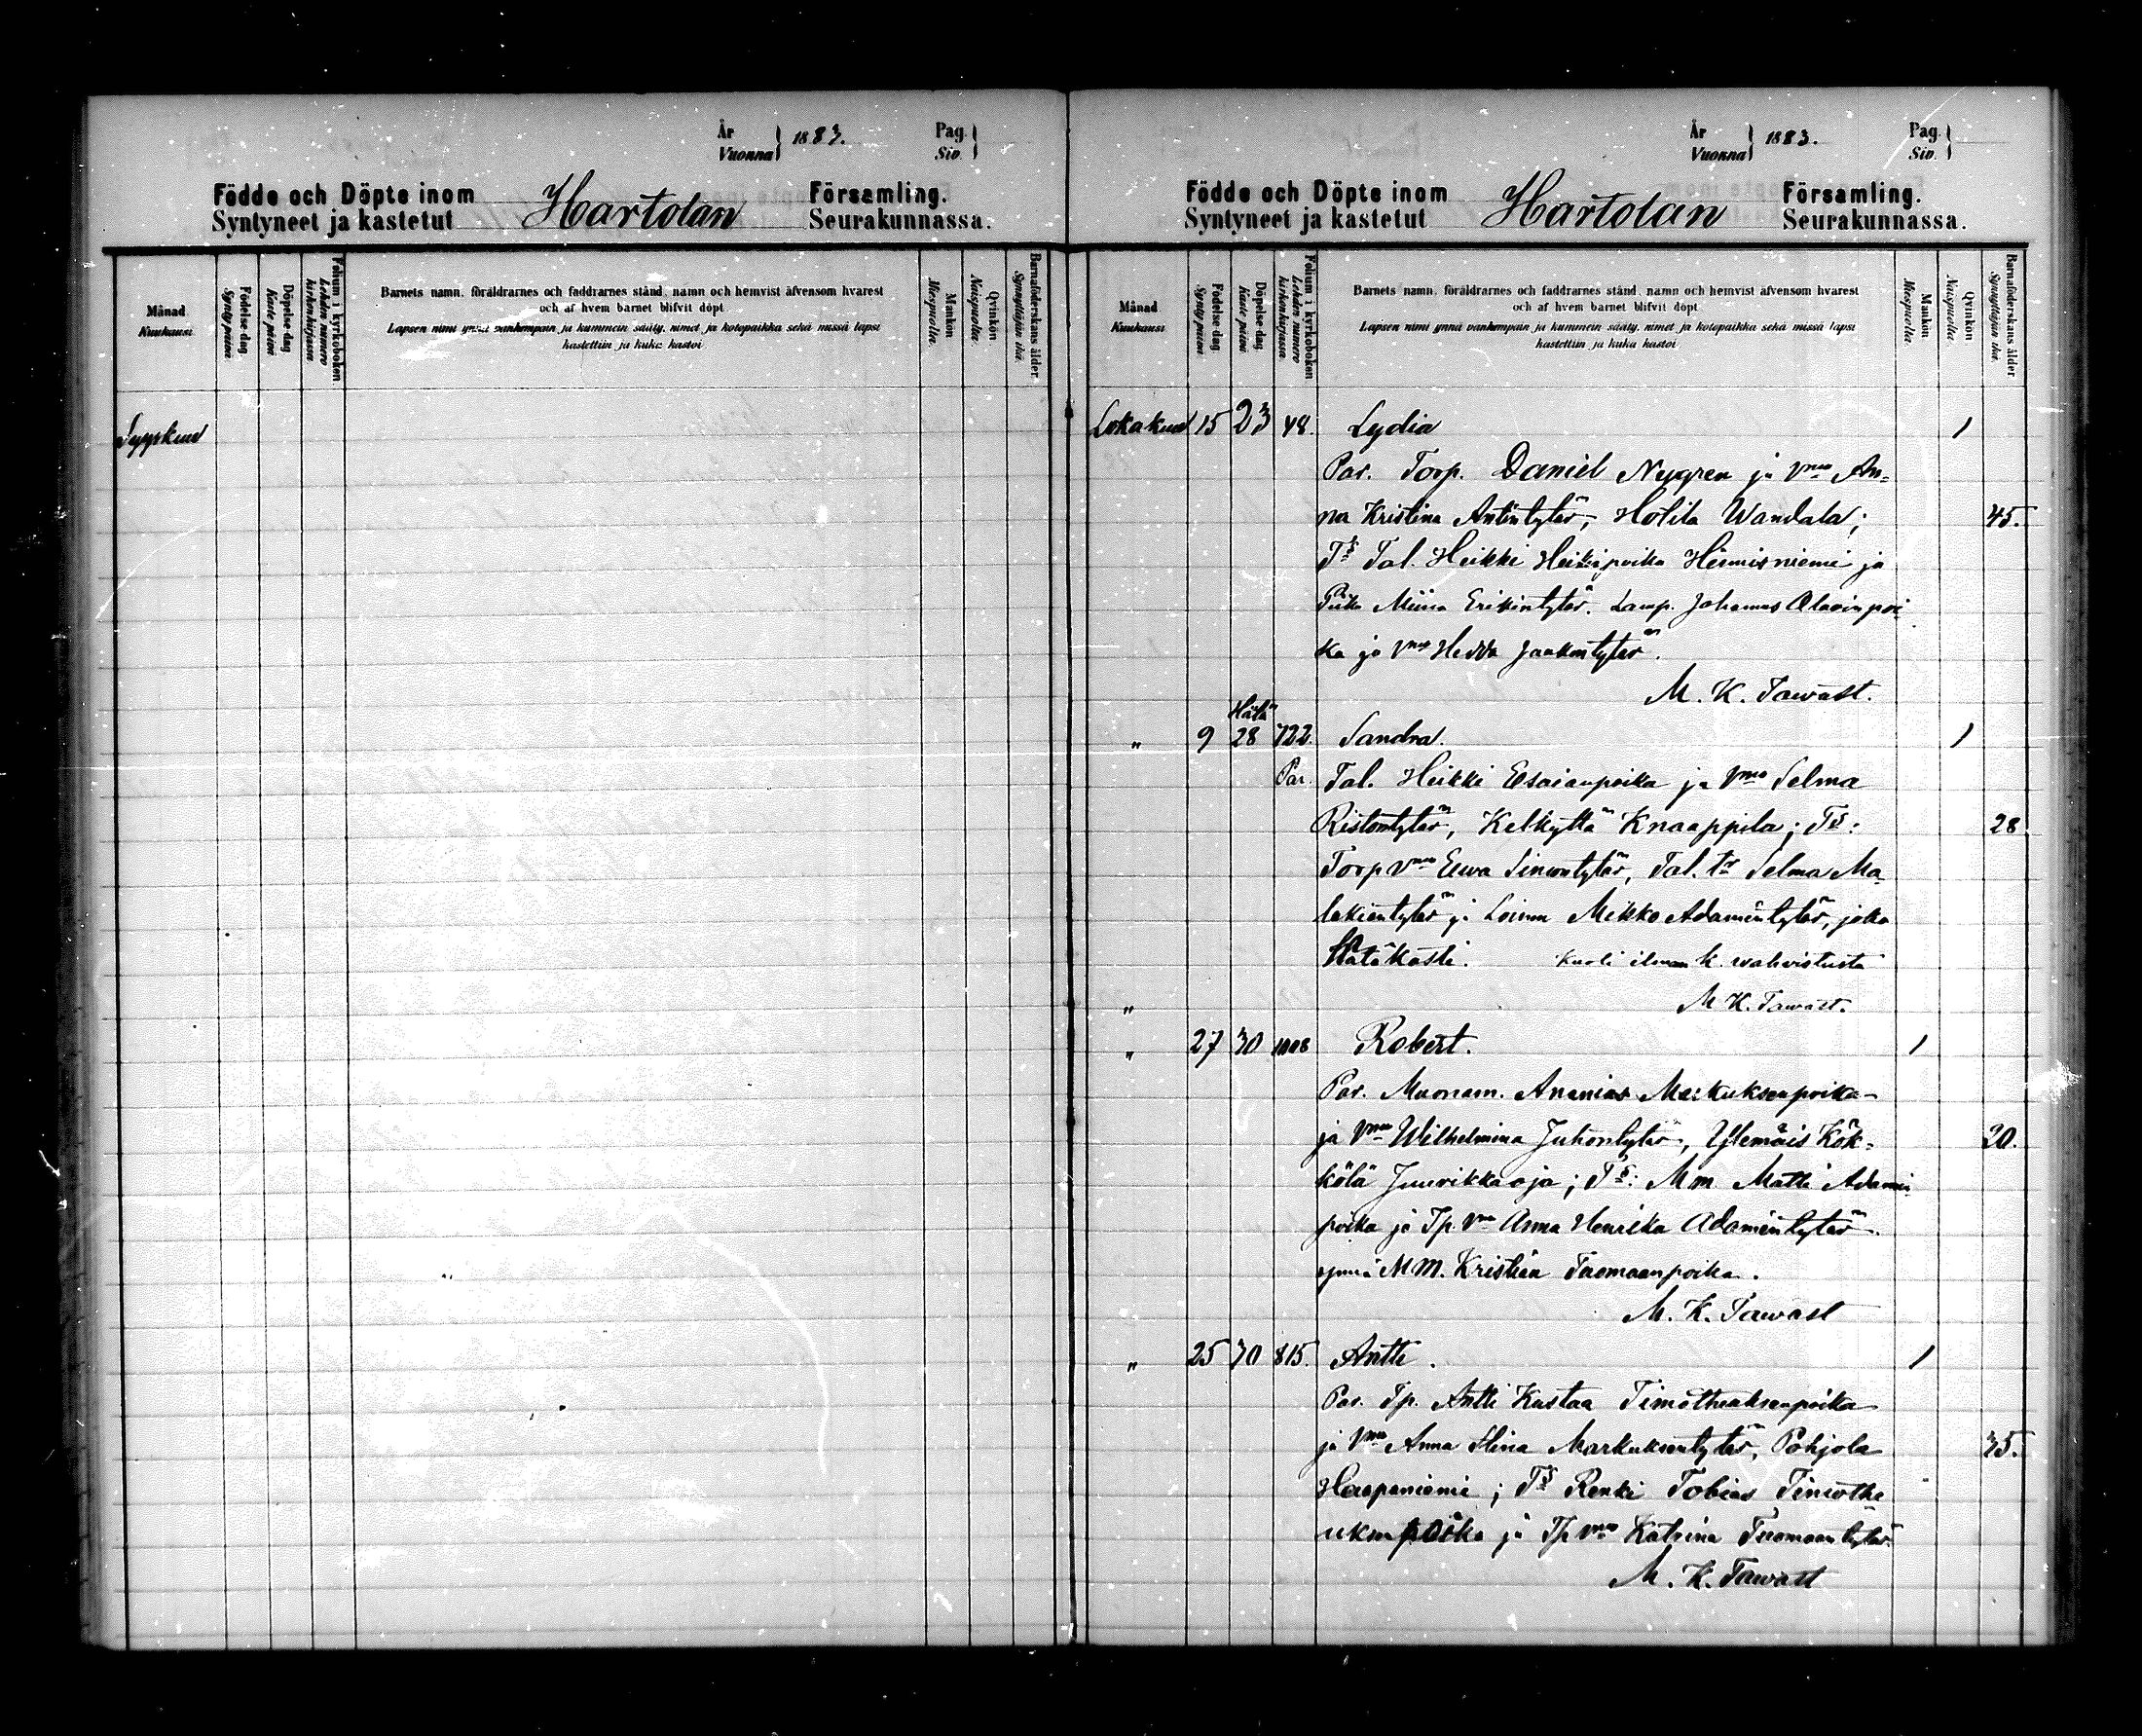 År
Vuonna } 1883.
Pag.
Siv. }
Födde och Döpte inom
Syntyneet ja kastetut
Hartolan
Församling.
Seurakunnassa.
Månad
Kuukausi
Födelse dag
Synty päivä
Döpelse dag
Kaste päivä
Folium i kyrkoboken
Lehden numero kirkonkirjassa
Barnets namn, föräldrarnes och faddrarnes stånd, namn och hemvist äfvensom hvarest
och af hvem barnet blifvit döpt
Lapsen nimi ynnä vanhempain ja kummein sääty, nimet ja kotopaikka sekä missä lapsi
kastettiin ja kuka kastoi
Mankön
Miespuolia.
Qvinkön
Naispuolia.
Barnaföderskans ålder.
Synnyttäjän ikä.
Syyskuu
År
Vuonna } 1883.
Pag.
Siv. }
Födde och Döpte inom
Syntyneet ja kastetut
Hartolan
Församling.
Seurakunnassa.
Månad
Kuukausi
Födelse dag
Synty päivä
Döpelse dag
Kaste päivä
Folium i kyrkoboken
Lehden numero kirkonkirjassa
Barnets namn, föräldrarnes och faddrarnes stånd, namn och hemvist äfvensom hvarest
och af hvem barnet blifvit döpt
Lapsen nimi ynnä vanhempain ja kummein sääty, nimet ja kotopaikka sekä missä lapsi
kastettiin ja kuka kastoi
Mankön
Miespuolia.
Qvinkön
Naispuolia.
Barnaföderskans ålder
Synnyttäjän ikä.
Lokakuu 15 23 48. Lydia 1
Par. Torp. Daniel Nygren ja Vmo An-
na Kristina Antintytär, Hotila Wandala; 45.
Ts Tal. Heikki Heikinpoika Hiirnisniemi ja
Piika Miina Erikintytär. Lamp. Johannes Olavinpoi-
ka ja Vmo Hedda Jaakontytär.
M. K. Tawast.
Hätä
" 9 28 722. Sandra. 1
Par. Tal. Heikki Esaianpoika ja Vmo Selma
Ristontytär, Kelkyttä Knaappila; Ts: 28
Torp Vmo Eewa Simontytär, Tal. tr Selma Ma-
lakientytär ja Loinen Mikko Adamintytär, joka
Hätäkasti. Kuoli ilman k. wahvistusta
" M K. Tawast.
" 27 30 1008 Robert. 1
Par. Muonam. Ananias Markuksenpoika
ja Vmo Wilhelmina Juhontytär, Ylemäis Kök- 20.
kölä Juurikkaoja; Ts: Mm Matti Adamin
poika ja Tp. Vmo Anna Henrika Adamintytär
ynnä M M. Kristian Tuomaanpoika.
M. K. Tawast
" 25 30 815. Antti. 1
Par. Tp. Antti Kustaa Timotheuksenpoika
ja Vmo Anna Stina Markuksentytär, Pohjola 35.
Haapaniemi; Ts Renki Tobias Timothe
uksenpoika ja Tp Vmo Katrina Tuomaantytär.
M. K. Tawast